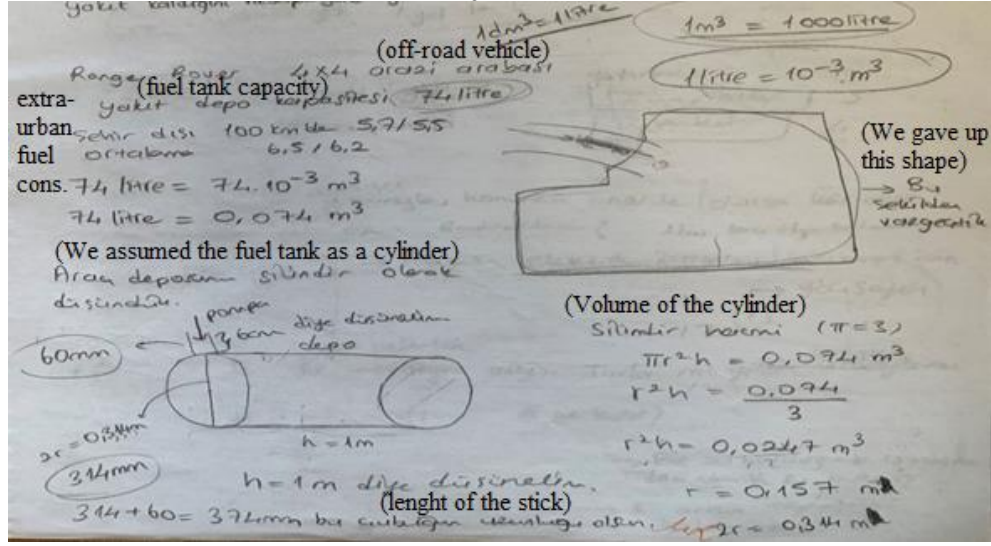 yakıt kaldığını
1dm³ = 1 litre
1m³ = 1000 litre
1 litre = 10⁻³ m³
(off-road vehicle)
Range Rover 4x4 arazi arabası
(fuel tank capacity)
yakıt depo kapasitesi 74 litre
extra-urban fuel cons.
şehir dışı 100 km'de 5,7/5,5
ortalama 6,5/6,2
74 litre = 74.10⁻³ m³
74 litre = 0,074 m³
(We gave up this shape)
Bu şekilden vazgeçtik
(We assumed the fuel tank as a cylinder)
Araç deposunu silindir olarak düşündük.
pompa
6cm diye düşünelim
depo
60mm
2r = 0,314m
314mm
h = 1m
h = 1m diye düşünelim.
(lenght of the stick)
314+60 = 374mm bu çubuğun uzunluğu olsun.
(Volume of the cylinder)
Silindir hacmi (π=3)
πr²h = 0,074 m³
r²h = 0,074
3
r²h = 0,0247 m³
r = 0,157 m
2r = 0,314 m